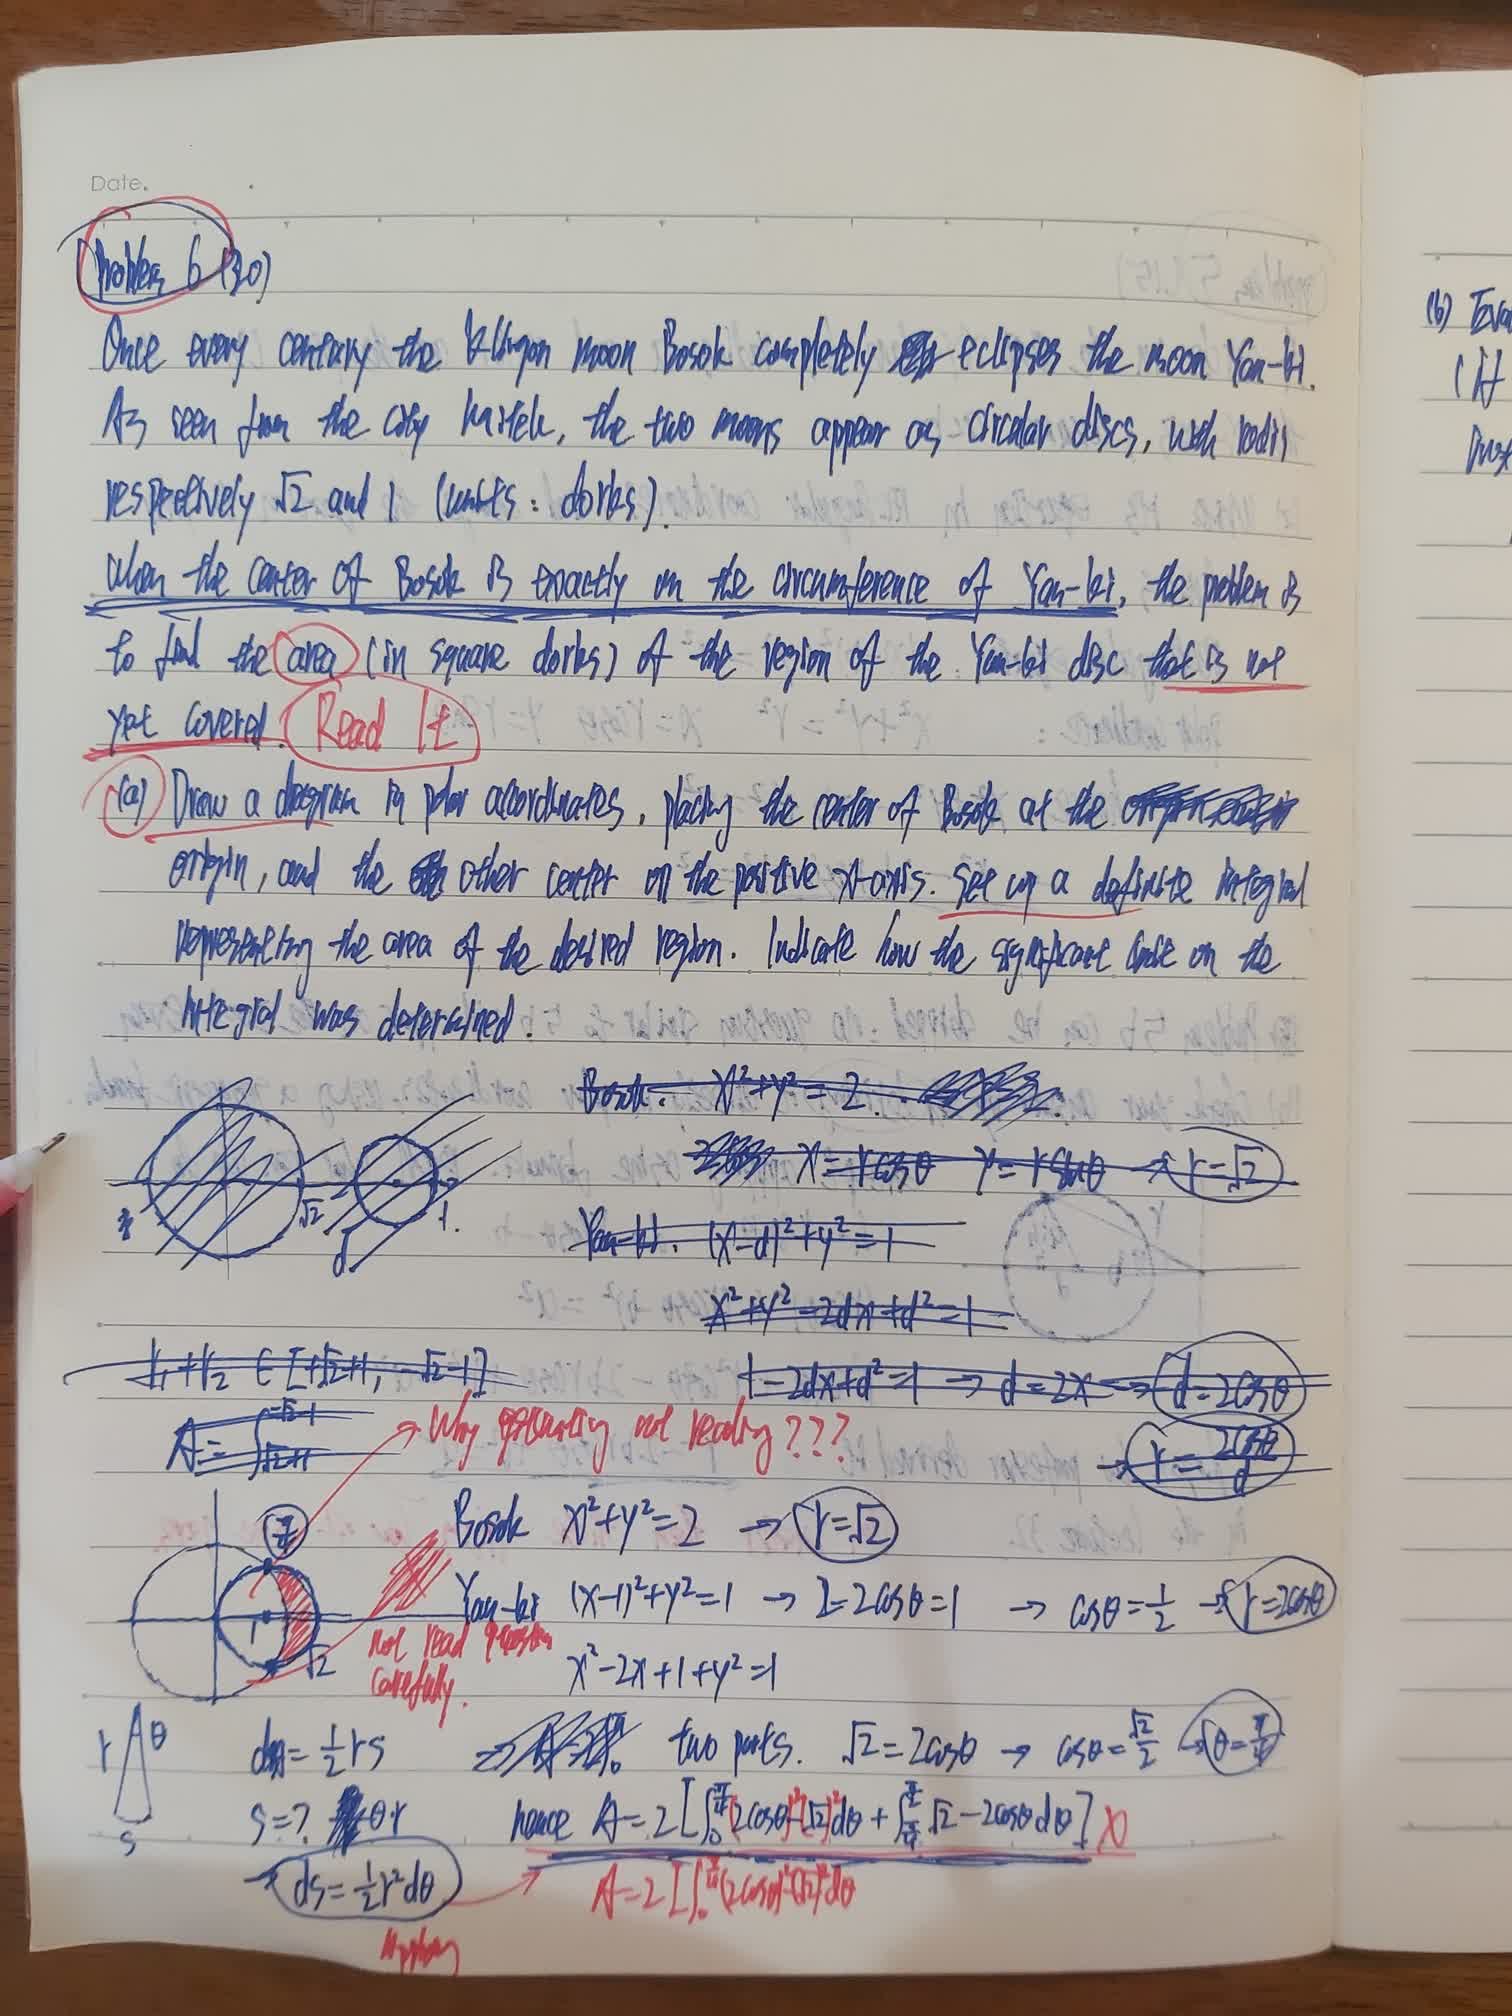 Date.
Problem 6 (30)
Once every century the Klingon moon Bosok completely eclipses the moon Yan-ki.
As seen from the city Kaitek, the two moons appear as circular discs, with radii
respectively √2 and 1 (units: dorks).
when the center of Bosok is exactly on the circumference of Yan-ki, the problem is
to find the area (in square dorks) of the region of the Yan-ki disc that is not
yet covered. Read It
(a) Draw a diagram in polar acoordinates, placing the center of Bosok at the
origin, and the other center on the positive x-axis. Set up a definite integral
representing the area of the desired region. Indicate how the significant on the
integral was determined.
Bosok: x²+y²=2.
x=rcosθ y=rsinθ → r=√2
√2 1.
d
Yan-ki. (x-d)²+y²=1
x²+y²-2dx+d²=1
r₁+r₂ ∈ [+√2+1, -√2-1]
1-2dx+d²=1 → d=2x → d=2cosθ
A=∫
Why geometry not reading???
→ r=2cosθ/d
Bosok x²+y²=2 → r=√2
Yan-ki (x-1)²+y²=1 → 2-2cosθ=1 → cosθ=1/2 → r=2cosθ
1 √2
not read question
carefully.
x²-2x+1+y²=1
r θ
s
=1/2 rs
two parts. √2=2cosθ → cosθ=√2/2 → θ=π/4
s=? θr
hence A=2[∫₀^{π/4}(2cosθ)²-(√2)²dθ+∫_{π/4}^{π/2}√2-2cosθdθ] X
→ ds=1/2r²dθ
A=2[∫₀^{π/4}(2cosθ)²-(√2)²dθ